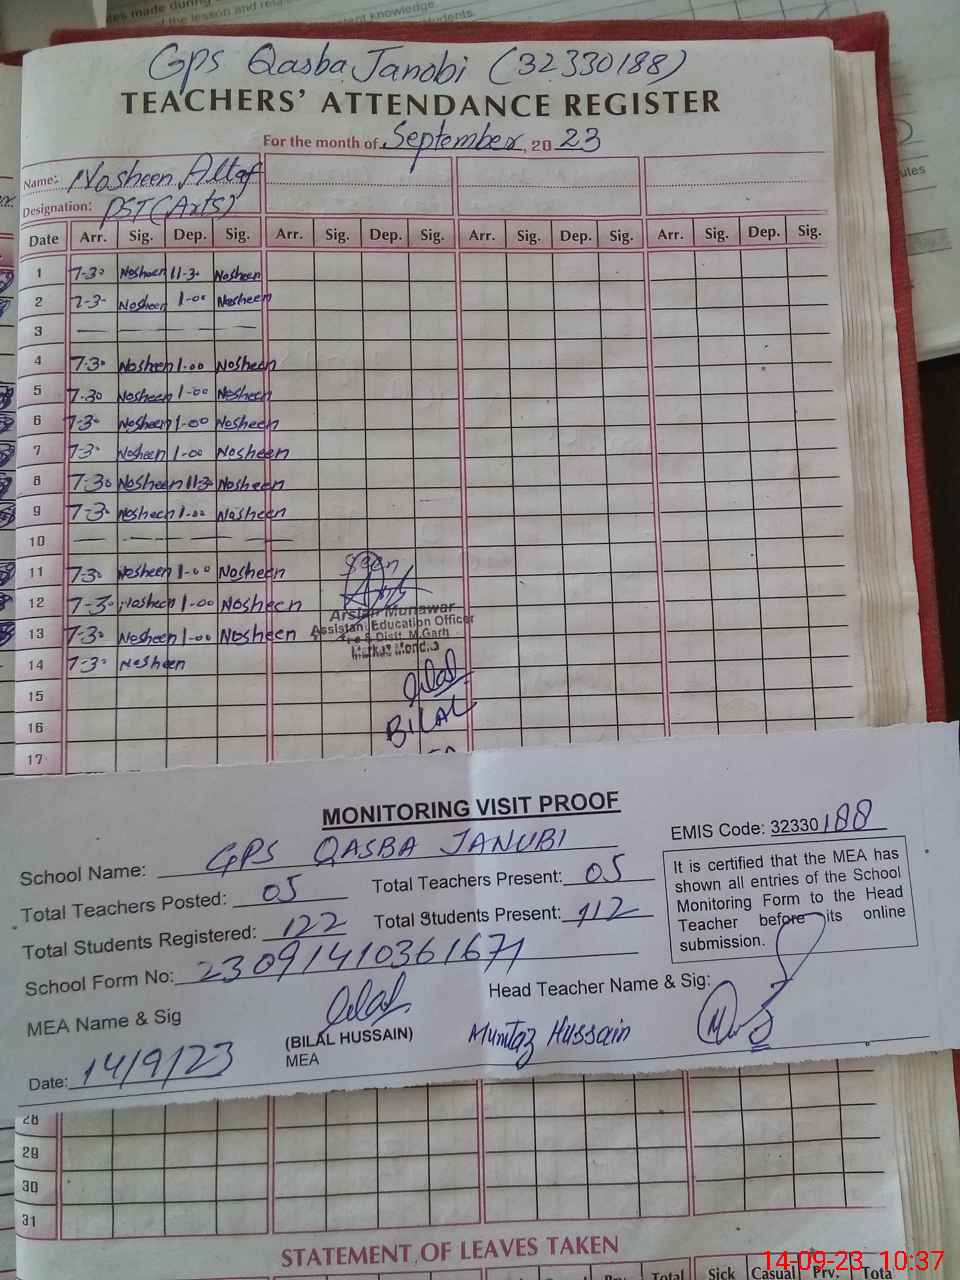 GPS Qasba Janobi (32330188)
TEACHERS' ATTENDANCE REGISTER
For the month of September, 2023
Name: Nosheen Altaf
Designation: PST (Arts)
Date Arr. Sig. Dep. Sig. Arr. Sig. Dep. Sig. Arr. Sig. Dep. Sig. Arr. Sig. Dep. Sig.
1 7-30 Nosheen 11-30 Nosheen
2 7-30 Nosheen 1-00 Nosheen
3 — — — —
4 7-30 Nosheen 1-00 Nosheen
5 7-30 Nosheen 1-00 Nosheen
6 7-30 Nosheen 1-00 Nosheen
7 7-30 Nosheen 1-00 Nosheen
8 7-30 Nosheen 11-30 Nosheen
9 7-30 Nosheen 1-00 Nosheen
10 — — — —
11 7-30 Nosheen 1-00 Nosheen Seen
12 7-30 Nosheen 1-00 Nosheen
Arslan Munawar
Assistant Education Officer
13 7-30 Nosheen 1-00 Nosheen
& Distt. M.Garh
Markaz
14 7-30 Nosheen
15
16 BILAL
17
MONITORING VISIT PROOF
School Name: GPS QASBA JANUBI EMIS Code: 32330188
Total Teachers Posted: 05 Total Teachers Present: 05
Total Students Registered: 122 Total Students Present: 112
School Form No: 23091410361671
It is certified that the MEA has
shown all entries of the School
Monitoring Form to the Head
Teacher before its online
submission.
MEA Name & Sig Bilal Head Teacher Name & Sig:
(BILAL HUSSAIN) Mumtaz Hussain
MEA
Date: 14/9/23
28
29
30
31
STATEMENT OF LEAVES TAKEN
Total Sick Casual Prv. Tota
14-09-23 10:37